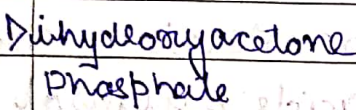 Dihydroxyacetone
Phosphate